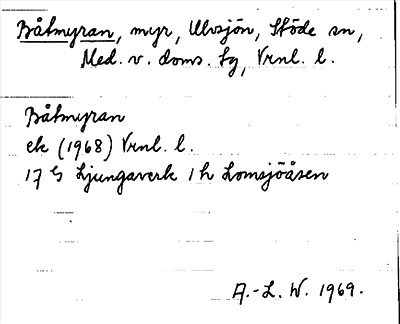 Båtmyran, myr, Ulvsjön, Stöde sn,
Med. v. doms. tg, Vrnl. l.
Båtmyran
ek (1968) Vrnl. l.
17 G Ljungaverk 1 h Lomsjöåsen
A.-L. W. 1969.